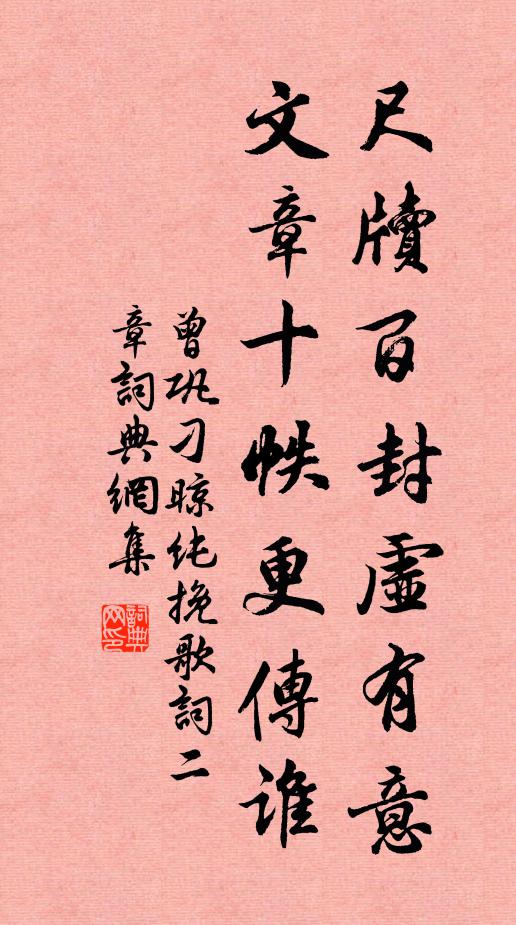 尺牘百封虛有意
文章十帙更傳誰
曾巩刁暻纯挽歌詞二
章詞典網集
詞典
网印